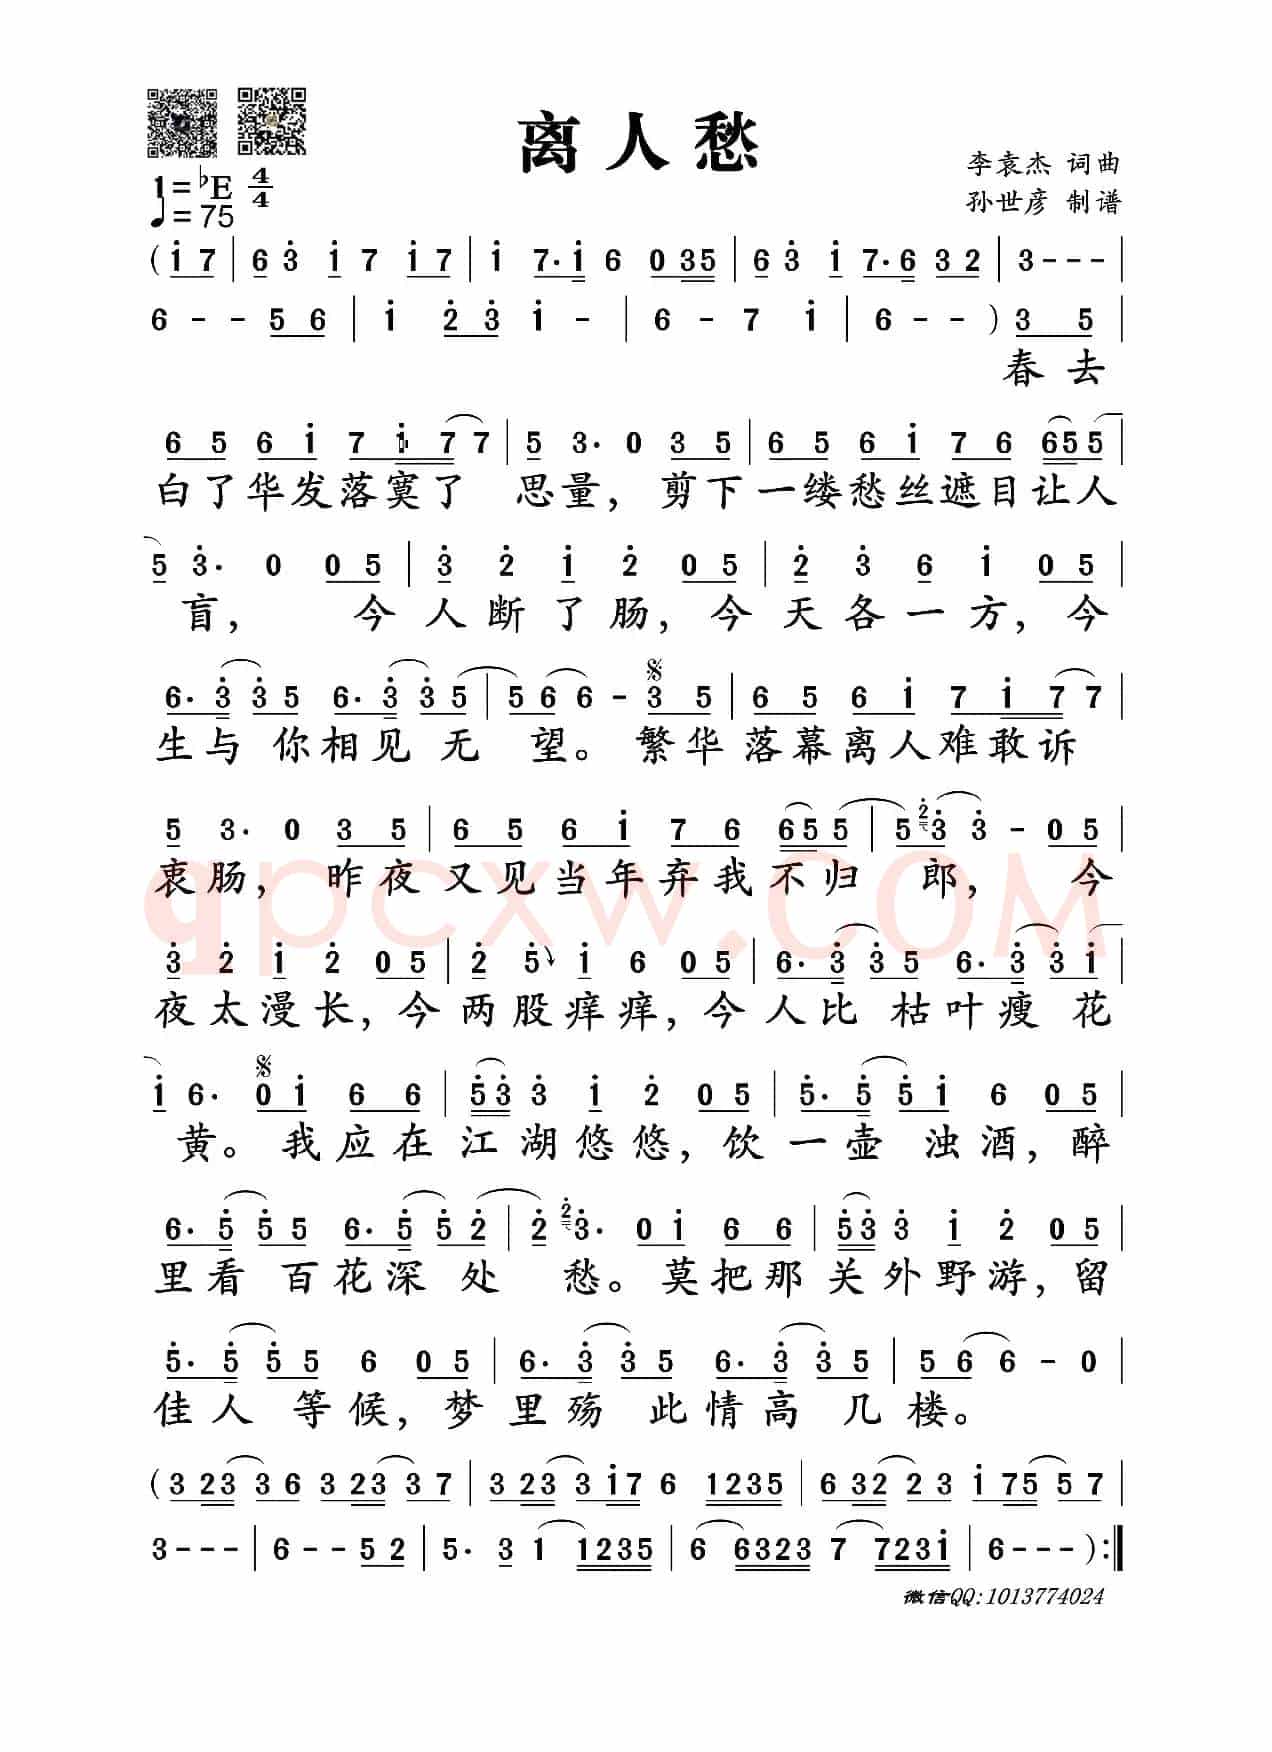 离人愁
李袁杰 词曲
孙世彦 制谱
1=♭E 4/4
♩=75
(i 7 | 6 3 i 7 i 7 | i 7· i 6 0 35 | 6 3 i 7· 6 3 2 | 3 - - - |
6 - - 5 6 | i 2 3 i - | 6 - 7 i | 6 - - ) 3 5 |
春去
6 5 6 i 7 i 7 7 | 5 3· 0 3 5 | 6 5 6 i 7 6 65 5 |
白了华发落寞了 思量，剪下一缕愁丝遮目让人
5 3· 0 0 5 | 3 2 i 2 0 5 | 2 3 6 i 0 5 |
盲， 今人断了肠，今天各一方，今
6· 3 3 5 6· 3 3 5 | 5 6 6 - 3 5 | 6 5 6 i 7 i 7 7 |
生与 你相见 无 望。繁华落幕离人难敢诉
5 3· 0 3 5 | 6 5 6 i 7 6 65 5 | 5 2 3 3 - 0 5 |
衷肠，昨夜又见当年弃我不归 郎， 今
3 2 i 2 0 5 | 2 5 i 6 0 5 | 6· 3 3 5 6· 3 3 i |
夜太漫长，今两股痒痒，今人比 枯叶瘦 花
i 6· 0 i 6 6 | 53 3 i 2 0 5 | 5· 5 5 i 6 0 5 |
黄。我应在江湖悠悠，饮一壶 浊酒，醉
6· 5 5 5 6· 5 5 2 | 2 2 3· 0 i 6 6 | 53 3 i 2 0 5 |
里看 百花深 处 愁。莫把那关外野游，留
5· 5 5 5 6 0 5 | 6· 3 3 5 6· 3 3 5 | 5 6 6 - 0
佳人 等候，梦里殇 此情高 几楼。
(3 23 3 6 3 23 3 7 | 3 23 3 i7 6 1235 | 6 32 2 3 i 75 5 7 |
3 - - - | 6 - - 5 2 | 5· 3 1 1235 | 6 6323 7 723i | 6 - - - ) :‖
微信QQ:1013774024
qpcxw.COM